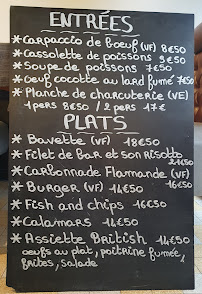 ENTRÉES
*Carpaccio de boeuf (VF) 8€50
*Cassolette de poissons 9€50
*Soupe de poissons 7€50
*Oeuf cocotte au lard fumé 7€50
*Planche de charcuterie (VE)
1 pers 8€50 / 2 pers 17€
PLATS
* Bavette (VF) 18€50
* Filet de Bar et son risotto
21€50
* Carbonnade Flamande (VF)
16€50
* Burger (VF) 14€50
* Fish and chips 16€50
* Calamars 14€50
* Assiette British 14€50
oeufs au plat, poitrine fumée,
frites, salade